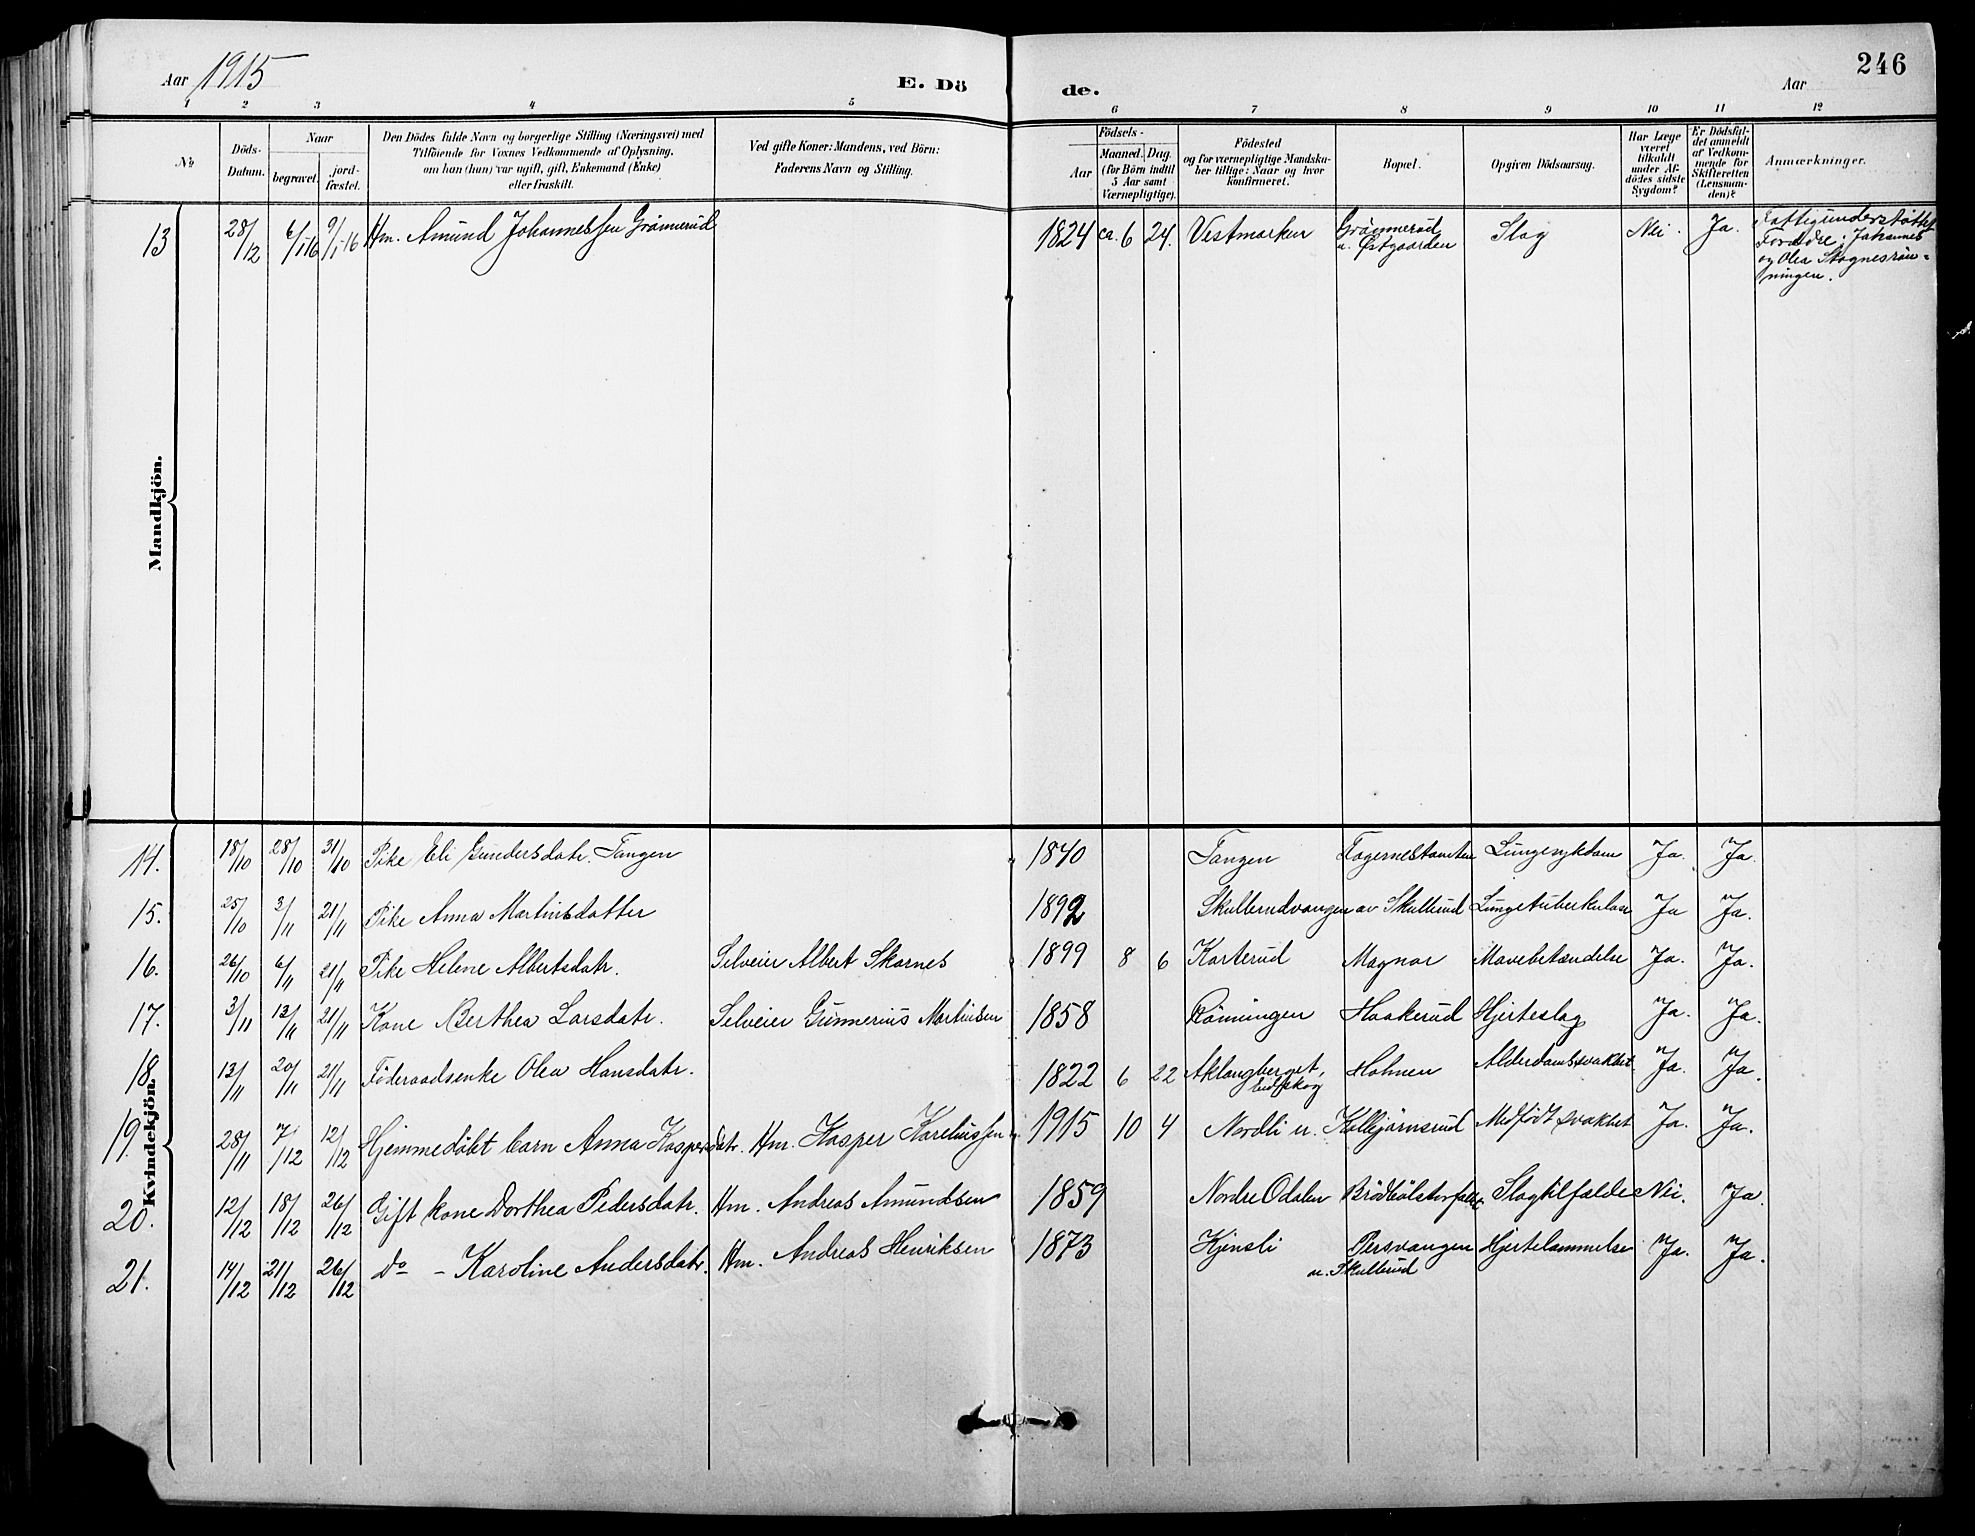 Aar 1915 E. Dö de. Aar 246
1 2 3 4 5 6 7 8 9 10 11 12
No
Döds-Datum.
Naar
begravet.
jord-fæstet.
Den Dödes fulde Navn og borgerlige Stilling (Næringsvei) med
Tilföiende for Voxnes Vedkommende af Oplysning,
om han (hun) var ugift, gift, Enkemand (Enke)
eller fraskilt.
Ved gifte Koner: Mandens, ved Börn:
Faderens Navn og Stilling.
Födsels-
Aar
Maaned. Dag.
(for Börn indtil
5 Aar samt
Værnepligtige).
Födested
og for værnepligtige Mandska-
ber tillige: Naar og hvor
konfirmeret.
Bopæl.
Opgiven Dödsaarsag.
Har Læge
været
tilkaldt
under Af-
dödes sidste
Sygdom?
Er Dödsfal-
det anmeldt
af Vedkom-
mende for
Skifteretten
(Lensman-
den)?
Anmærkninger.
Mandkjön.
13 28/12 6/1 16 9/1-16 Hm. Amund Johannessen Grönnerud 1824 ca. 6 24. Vestmarken Grönnerud u. Østgaarden Slag Nei. Ja. Fattigunderstøttet
Forældre: Johannes
og Olea Stognesrön-
ningen.
Kvindekjön.
14. 18/10 28/10 31/10 Pike Eli Gundersdatr. Tangen 1840 Tangen Fagernestomten Lungesykdom Ja. Ja.
15. 25/10 3/11 21/11 Pike Anna Martinsdatter 1892 Skullerudvangen av Skullerud Lungetuberkulose Ja Ja.
16. 26/10 6/11 21/11 Pike Helene Albertsdatr. Selveier Albert Skarnes 1899 8 6 Karterud Magnor Mavebetændelse Ja. Ja.
17. 3/11 13/11 21/11 Kone Berthea Larsdatr. Selveier Gunnerius Martinsen 1858 Rönningen Haakerud Hjerteslag Ja. Ja.
18. 13/11 20/11 21/11 Föderaadsenke Olea Hansdatr. 1822 6 22 Aklangberget, Eidskog Holmen Alderdomssvakhet Ja. Ja.
19. 28/11 7/12 12/12 Hjemmedöbt barn Anna Kaspersdatr. Hm. Kasper Kareliussen 1915 10 4 Nordli u. Kolbjörnsrud Medfödt svakhet Ja. Ja.
20. 12/12 18/12 26/12 Gift kone Dorthea Pedersdatr. Hm. Andreas Amundsen 1859 Nordre Odalen Slagtilfælde Nei. Ja.
21. 14/12 21/12 26/12 do - Karoline Andersdatr. Hm. Andreas Henriksen 1873 Kjensli Persvangen u. Skullerud Hjertelammelse Ja. Ja.